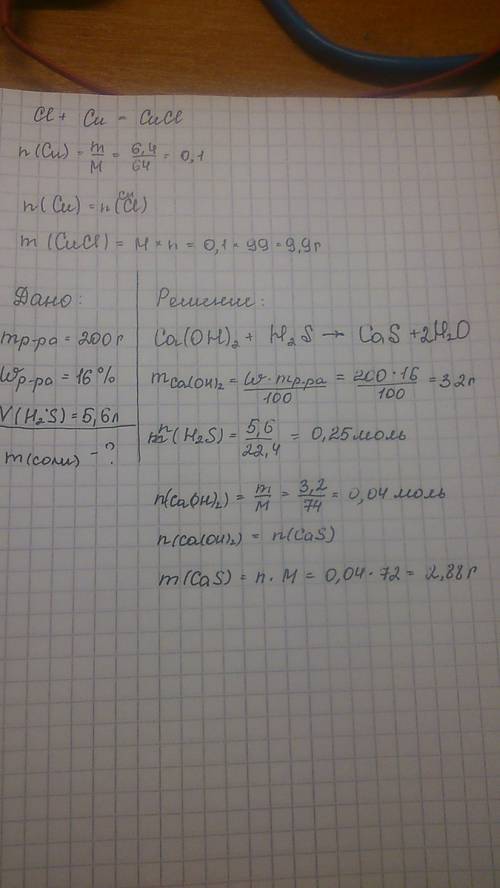 Cl + Cu = CuCl
n(Cu) = m/M = 6,4/64 = 0,1
n(Cu) = n(CuCl)
m(CuCl) = M × n = 0,1 × 99 = 9,9г
Дано:
mр-ра = 200г
Wр-ра = 16%
V(H₂S) = 5,6л
m(соли) - ?
Решение:
Ca(OH)₂ + H₂S → CaS + 2H₂O
mCa(OH)₂ = W · mр-ра/100 = 200 · 16/100 = 32г
n(H₂S) = 5,6/22,4 = 0,25 моль
n(Ca(OH)₂) = m/M = 3,2/74 = 0,04 моль
n(Ca(OH)₂) = n(CaS)
m(CaS) = n · M = 0,04 · 72 = 2,88г